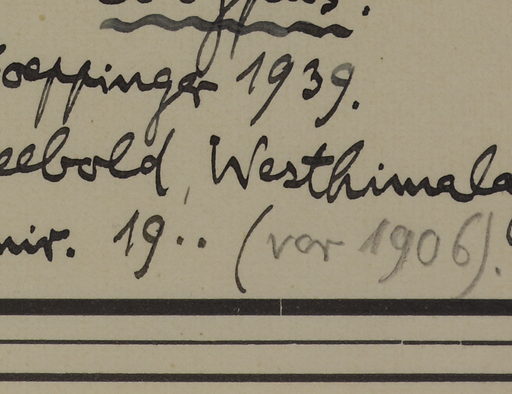 oeppinger 1939.
eebold, Westhimala
mir. 19.. (vor 1906).